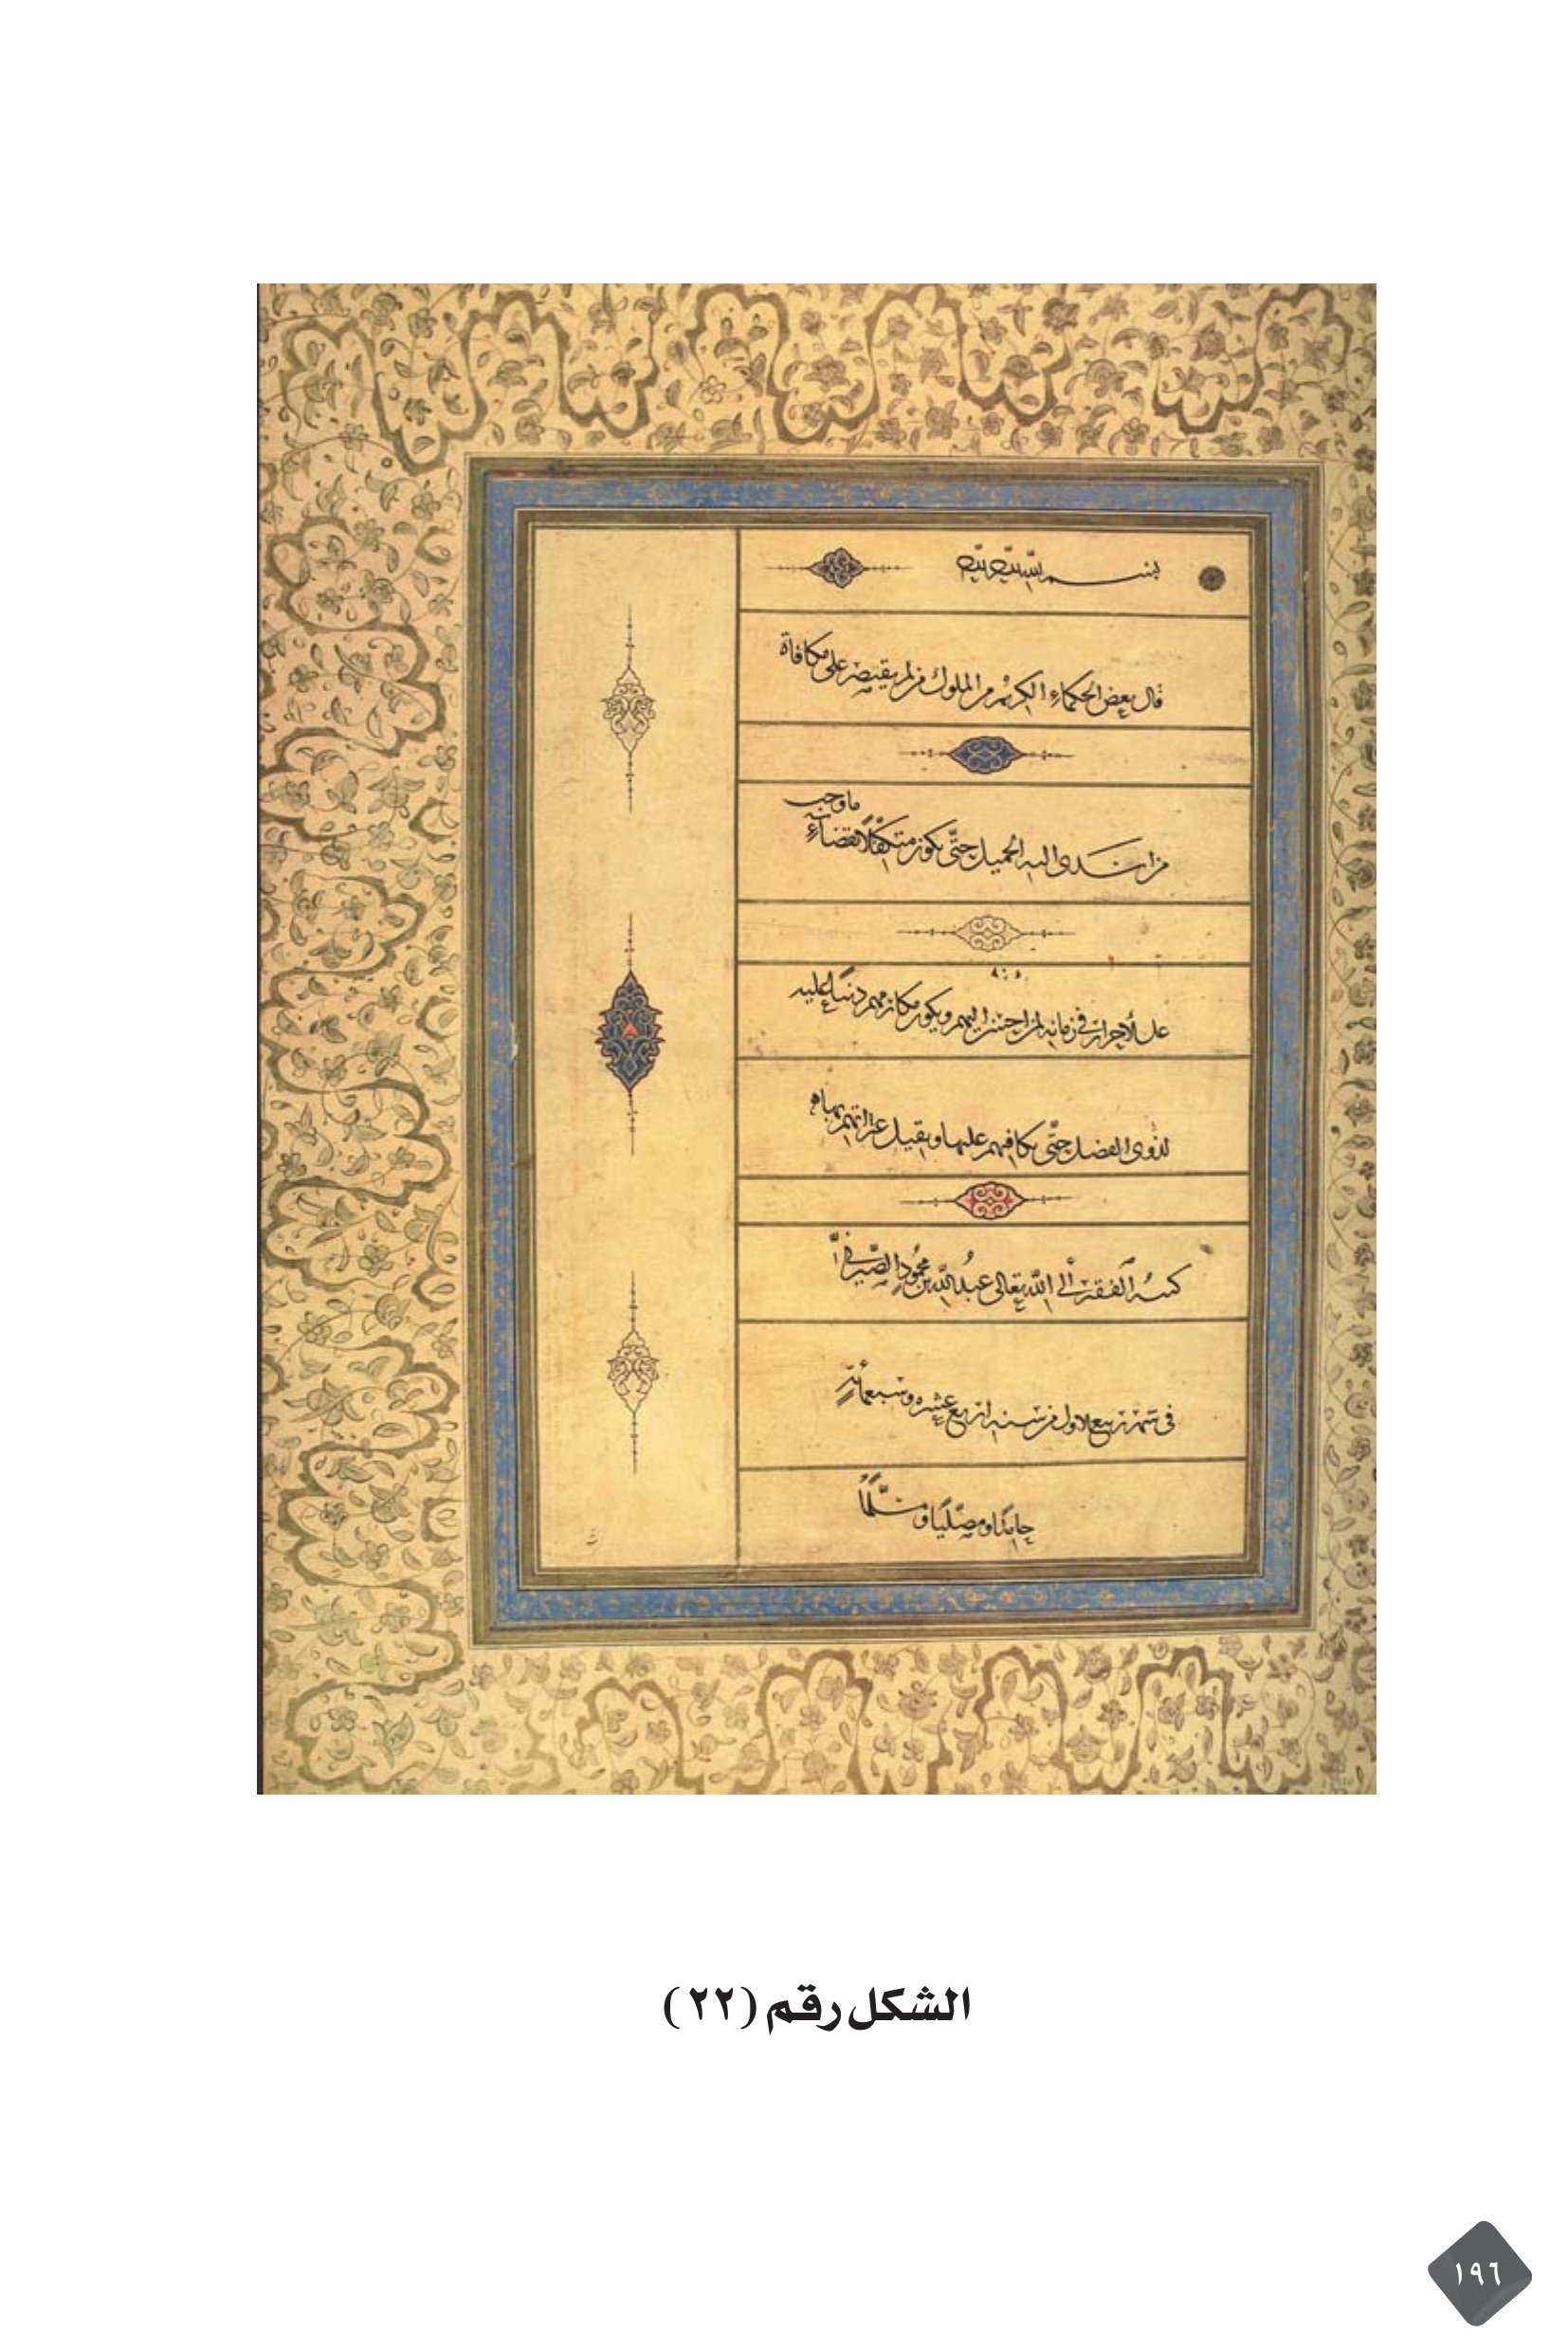 بسم الله
قال بعض الحكماء الكريم من الملوك من لم يقتصر على مكافاة
من اسدى اليه الجميل حتى يكون متكفلا بقضاء ما وجب
على الاحرار في زمانه لمن احسن اليهم ويكون مكارمهم دينا عليه
لذوي الفضل حتى يكافيهم عليها ويقيل عثراتهم بها
كتبه الفقير الى الله تعالى عبد الله بن محمود الصيرفي
في شهر ربيع الاول من سنة اربع عشره وسبعمائة
حامدا ومصليا ومسلما
الشكل رقم (٢٢)
١٩٦